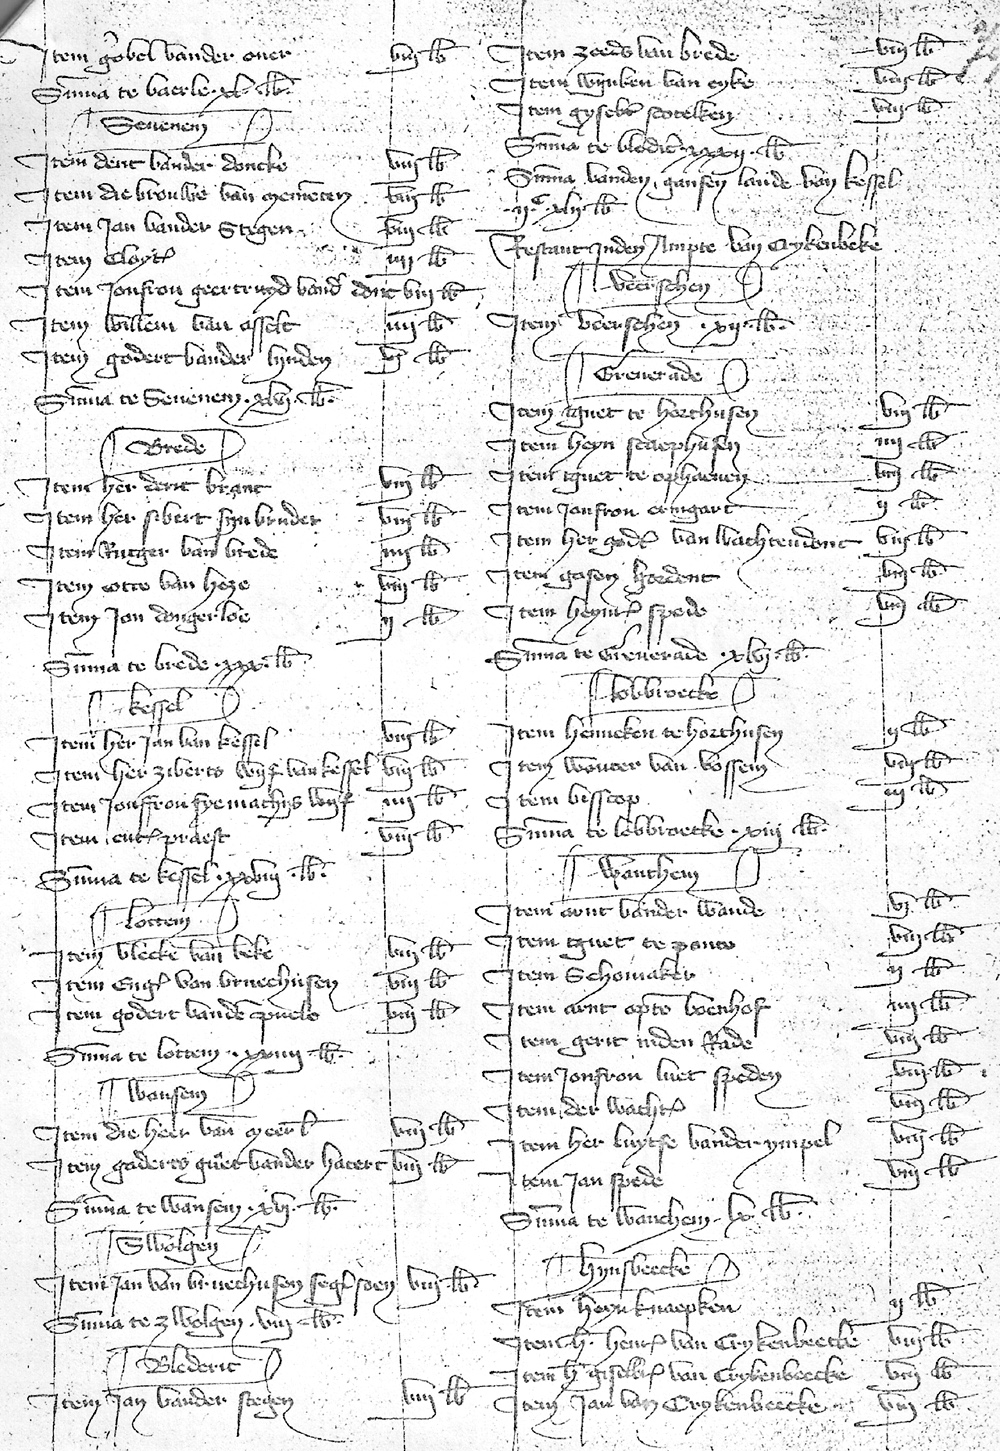 Item gobel vander oner viij lb
Su͞ma te baerle xl lb
Sevenem
Item deric vander doncke viij lb
Item die vrouwe van viij lb
Item Jan vander Stegen viij lb
Item Cloyt iiij lb
Item Jonfrou geertruyd vand donc viij lb
Item willem van asselt iiij lb
Item godert vander lynden vj lb
Su͞ma te Sevenem xlvj lb
Brede
Item her deric brant viij lb
Item her sibert syn bruder viij lb
Item Rutger van brede iiij lb
Item otto van heze viij lb
Item Jan dongerloe ij lb
Su͞ma te brede xxx lb
kessel
Item her Jan van kessel viij lb
Item her ziberts wijf van kessel viij lb
Item Jonffrou fye mathijs wijf iiij lb
Item praest viij lb
Su͞ma te kessel xxviij lb
Lottem
Item vlecke van beke viij lb
Item Eng van bruechusen viij lb
Item godert vande puele viij lb
Su͞ma te lottem xxiiij lb
Wansem
Item die heer van meerl viij lb
Item goderts guet vander hatert viij lb
Su͞ma te wansem xvj lb
Swolgen
Item Jan van bruechusen seg soen viij lb
Su͞ma te zwolgen viij lb
Blederic
Item Jan vander stegen viij lb
Item zeeds van brede viij lb
Item wynken van eyke viij lb
Item gysebt scotelken viij lb
Su͞ma te bledic xxxij lb
Su͞ma vanden gansen lande van kessel
ijc xlij lb
Restant inden Ampte van Crykenbeke
veerschen
Item veerschen xij lb
Greverade
Item tguet te herthusen viij lb
Item heyn scaephusen iiij lb
Item tguet te ophaeven viij lb
Item Jonfrou ermgart ij lb
Item her god van wachtendonc viij lb
Item gasen hoedont viij lb
Item heynr spede viij lb
Su͞ma te Greverade xlvj lb
lobbroecke
Item henneken te horthusen ij lb
Item wouter van vossem viij lb
Item bisscop iij lb
Su͞ma te lobbroecke xiij lb
wanchem
Item arnt vander wande vj lb
Item tguet te ponto viij lb
Item Schomaker ij lb
Item arnt opto boenhof iiij lb
Item gerit inden Rade viij lb
Item Jonfrou luet speden viij lb
Item der wacht viij lb
Item her luytse vander nympel viij lb
Item Jan spede viij lb
Su͞ma te wanchem lx lb
hynsbeecke
Item heyn knaepken ij lb
Item h henr van Crykenbeecke viij lb
Item h giselb van Crykenbeecke viij lb
Item Jan van Crykenbeecke viij lb